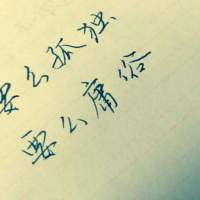 要么孤独
要么庸俗